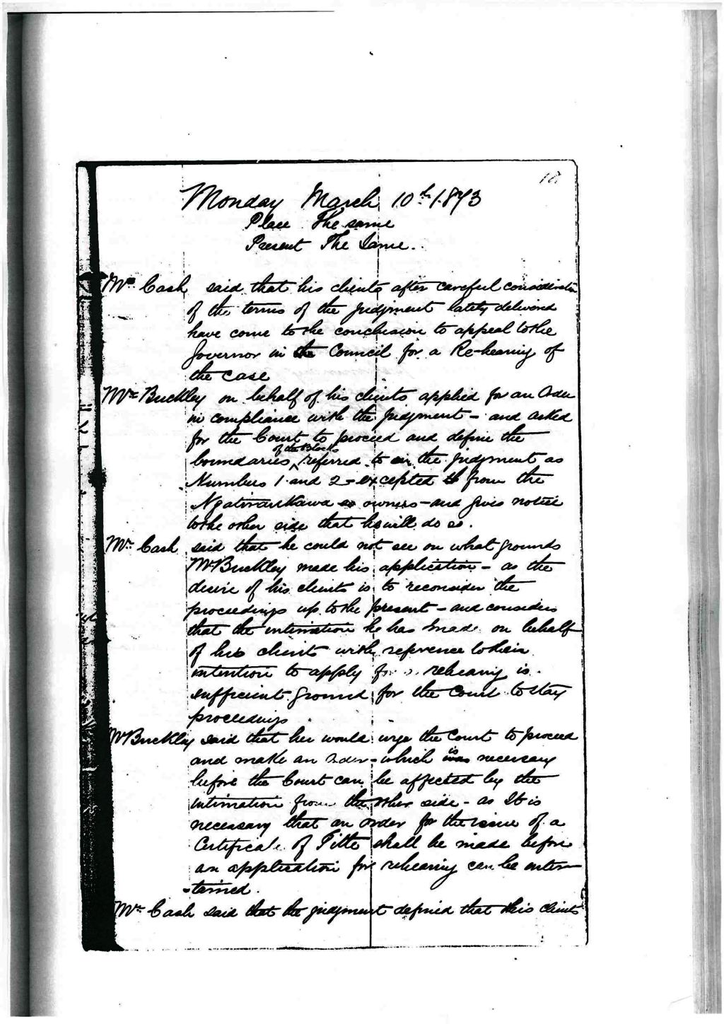 18.
Monday March 10th 1873
Place The same
Present The Same.
Mr Cash said that his clients after careful consideration
of the terms of the judgment lately delivered
have come to the conclusion to appeal to the
Governor in the Council for a Re-hearing of
the case
Mr Buckley on behalf of his clients applied for an Order
in compliance with the Judgment - and asked
for the Court to proceed and define the
of the Blocks
boundaries referred to in the Judgment as
Numbers 1 and 2 - excepted from the
owners - and gives notice
to the other side that he will do so.
Mr Cash said that he could not see on what grounds
Mr Buckley made his application - as the
desire of his clients is to reconsider the
proceedings up to the present - and considers
that the intimation he has made on behalf
of his clients with reference to their
intention to apply for a rehearing is
sufficient ground for the Court to stay
proceedings
Mr Buckley said that he would urge the Court to proceed
and make an Order - which is necessary
before the Court can be affected by the
intimation from the other side - as It is
necessary that an order for the issue of a
Certificate of Title shall be made before
an application for rehearing can be enter-
-tained.
Mr Cash said that the judgment defined that his clients